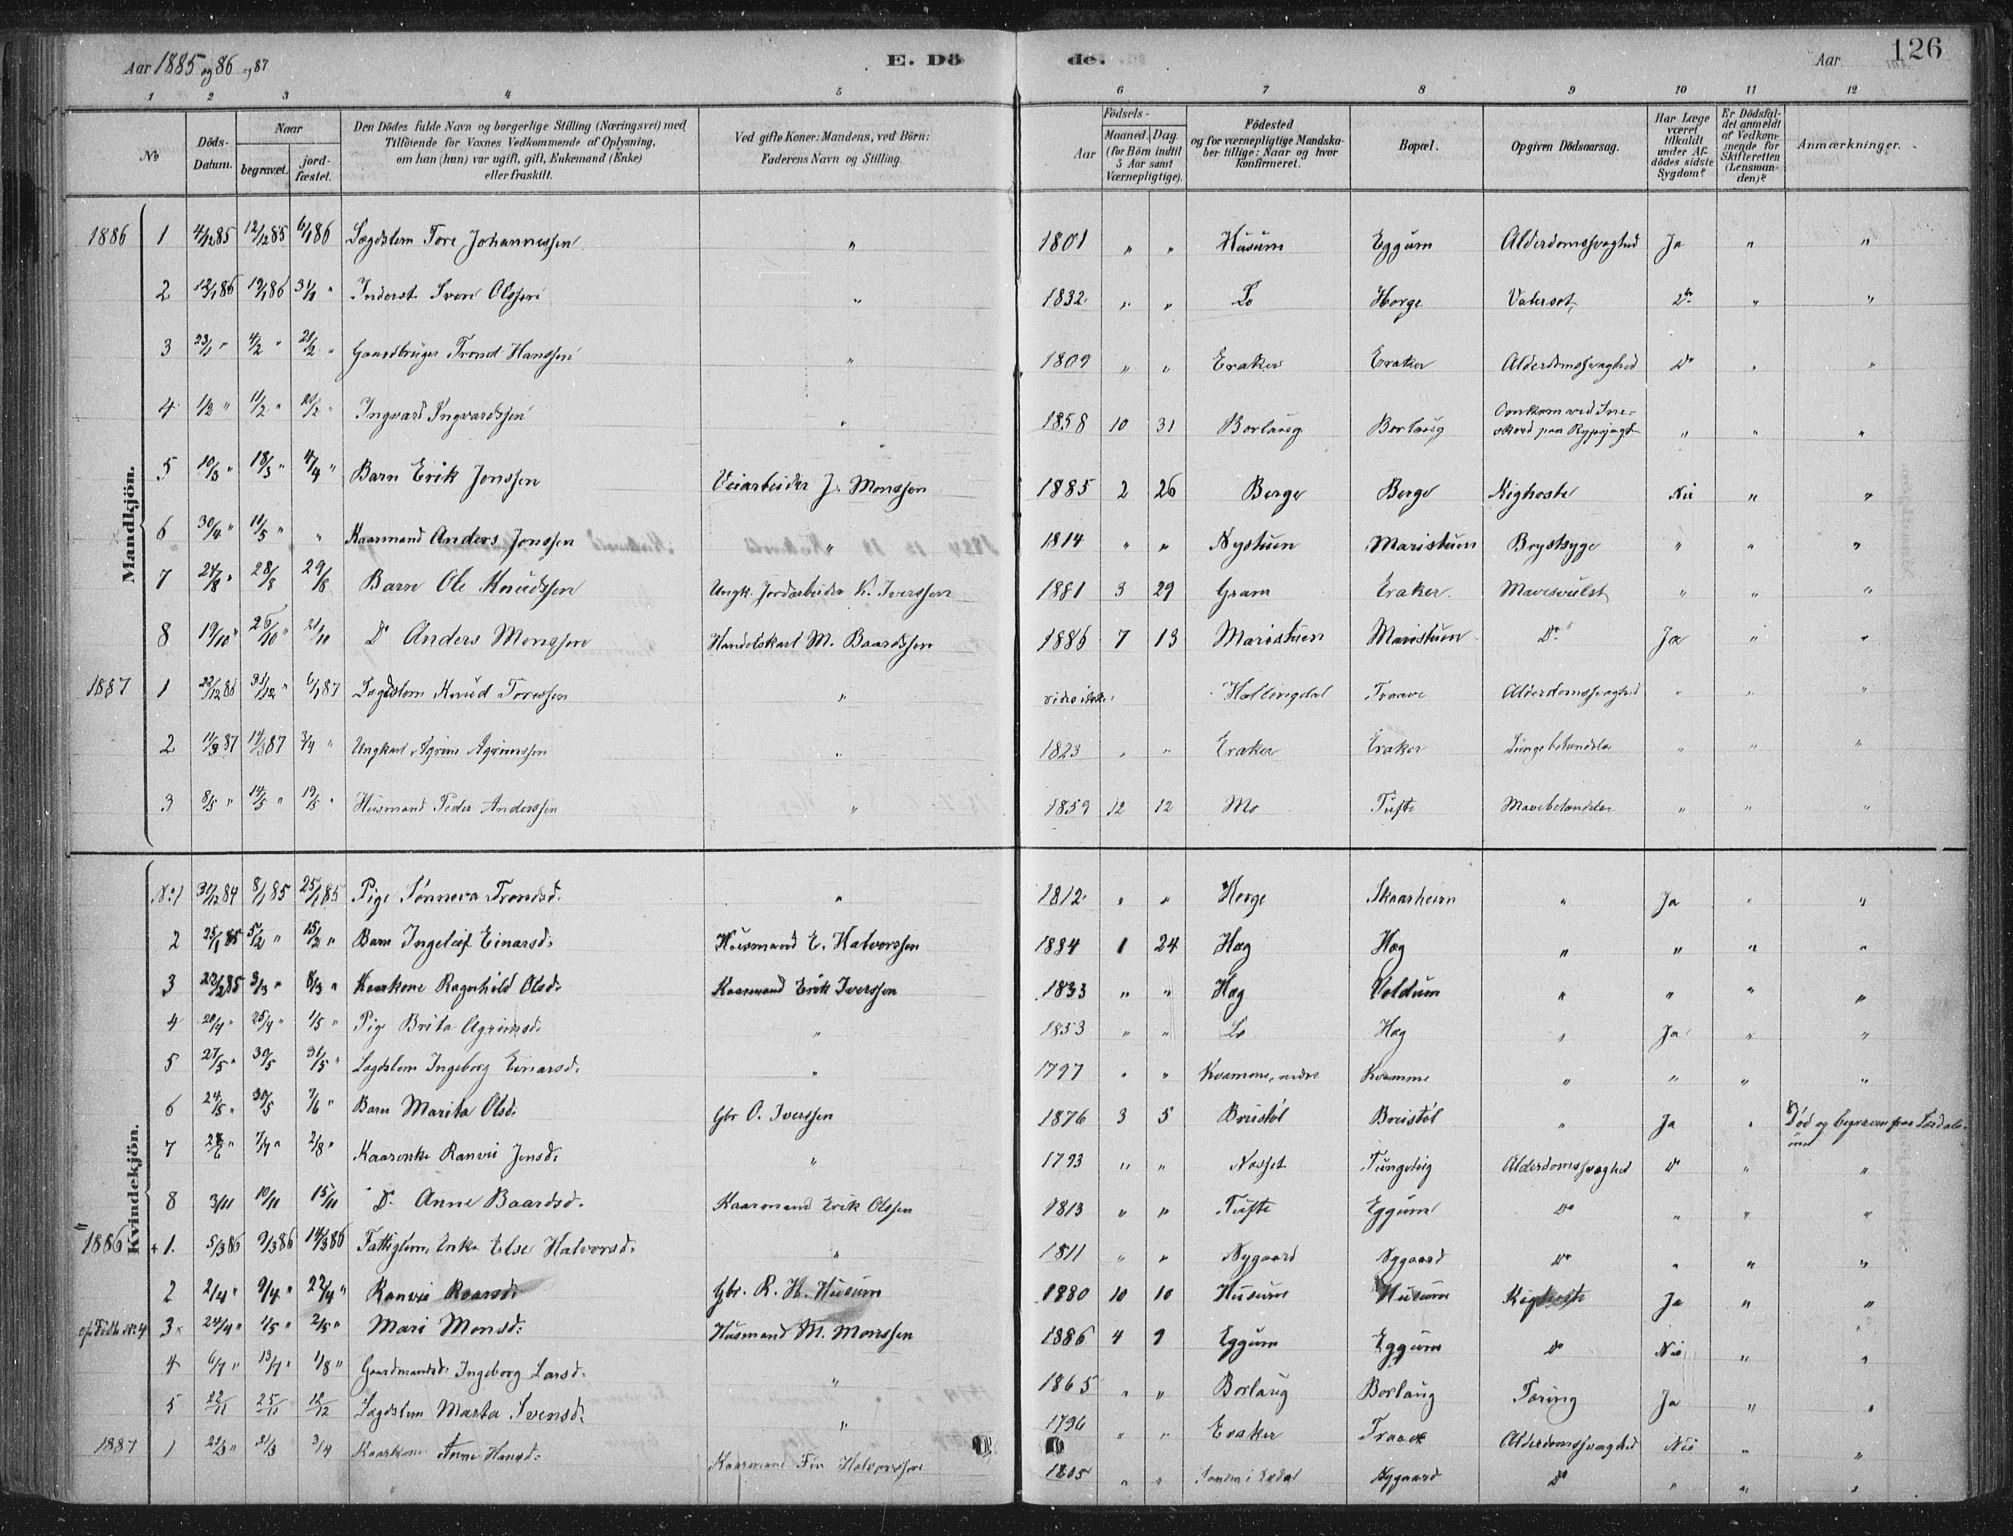 Aar 1885 og 86 og 87
E. Dö
de.
Aar
126
1 2 3 4 5 6 7 8 9 10 11 12
No
Döds-Datum.
Naar
begravet.
jord-fæstet.
Den Dödes fulde Navn og borgerlige Stilling (Næringsvei) med
Tilföiende for Voxnes Vedkommende af Oplysning,
om han (hun) var ugift, gift, Enkemand (Enke)
eller fraskilt.
Ved gifte Koner: Mandens, ved Börn:
Faderens Navn og Stilling.
Födsels-
Aar
Maaned.
Dag.
(for Börn indtil
5 Aar samt
Værnepligtige).
Födested
og for værnepligtige Mandska-
ber tillige: Naar og hvor
konfirmeret.
Bopæl.
Opgiven Dödsaarsag.
Har Læge
været
tilkaldt
under Af-
dödes sidste
Sygdom?
Er Dödsfal-
det anmeldt
af Vedkom-
mende for
Skifteretten
(Lensman-
den)?
Anmærkninger.
Mandkjön.
1886 1 4/12 85 12/12 85 6/1 86 Lægdslem Tore Johannessen " 1801 " " Husum Eggum Alderdomssvaghed Ja " "
2 12/1 86 19/1 86 31/1 " Inderst Iver Olssen " 1832 " " Lo Horge Vatersot, Do " "
3 23/1 " 4/2 " 21/2 " Gaardbruger Trond Hanssen " 1809 " " Eraker Eraker Alderdomssvaghed Do " "
4 1/2 " 11/2 " 21/2 " Ingvard Ingvardssen " 1858 10 31 Borlaug Borlaug Omkom ved Sne-
skred paa Rypejagt " " "
5 10/3 " 18/3 " 4/4 " Barn Erik Jonssen Veiarbeider J. Monssen 1885 2 26 Berge Berge Kighoste Nei " "
6 30/4 " 11/5 " " Kaarmand Anders Jonssen " 1814 " " Nystuen Maristuen Brystsyge " " "
7 24/8 " 28/8 29/8 Barn Ole Knudssen Ungk. Jordarbeider K. Iverssen 1881 3 29 Gram Eraker Mavesvulst " " "
8 19/10 " 26/10 " 21/11 Do Anders Monssen Handelskarl M. Baardssen 1886 7 13 Maristuen Maristuen Do Ja " "
1887 1 22/12 86 31/12 " 6/1 87 Lægdslem Knud Toressen " vides ikke Hallingdal Traave Alderdomssvaghed " " "
2 11/3 87 14/3 87 3/4 " Ungkarl Agrim Agrimssen " 1823 " " Eraker Eraker Lungebetændelse " " "
3 8/5 " 14/5 " 19/5 " Husmand Peder Anderssen " 1859 12 12 Mo Tufte Mavebetændelse " " "
Kvindekjön.
No 1 31/12 84 8/1 85 25/1 85 Pige Sønneva Trondsd. " 1812 " " Horge Skaarheim " Ja " "
2 25/1 85 5/2 " 15/2 " Barn Ingeleif Einarsd. Husmand E. Halvorssen 1884 1 24 Hæg Hæg " " " "
3 22/2 85 3/3 " 8/3 " Kaarkone Ragnhild Olsd. Kaarmand Erik Iverssen 1833 " " Hæg Voldum " " " "
4 20/4 " 25/4 " 1/5 " Pige Brita Agrimsd. " 1853 " " Lo Hæg " Ja " "
5 27/5 " 30/5 31/5 " Lægdslem Ingeborg Einarsd. " 1797 " " Kvamme, nedre Kvamme " " " "
6 24/5 " 30/5 7/6 " Barn Marita Olsd. Gbr O. Iverssen 1876 3 5 Breistøl Breistøl " Ja " Død og begraven paa Lærdals-
7 7/7 " 2/8 " Kaarenke Ranvei Jensd. " 1793 " " Næsset Tungeteig Alderdomssvaghed Do " "
8 3/11 10/11 15/11 Do Anne Baardsd. Kaarmand Erik Olssen 1813 " " Tufte Eggum Do " " "
1886 1. 5/3 86 9/3 86 14/3 86 Fattiglem, Enke Else Halvorsd. " 1811 " " Nygaard Nygaard Do " " "
2 2/4 " 9/4 " 22/4 " Ranvei Roarsd. Gbr. R. H. Husum 1880 10 10 Husum Husum Kighoste Ja " "
3 24/4 " 1/5 " 2/5 " Mari Monsd. Husmand M. Monssen 1886 4 9 Eggum Eggum Do Nei " "
4 6/7 " 13/7 " 1/8 " Gaardmandsd. Ingeborg Larsd. " 1865 " " Borlaug Borlaug Tæring Ja " "
5 22/11 25/11 12/12 Lægdslem Marta Svensd. " 1796 " " Eraker Traave Alderdomssvaghed Nei " "
1887 1 21/3 " 31/3 3/4 Kaarkone Anne Hansd. Kaarmand Fin Halvorssen 1805 " " Nygaard Do " " "